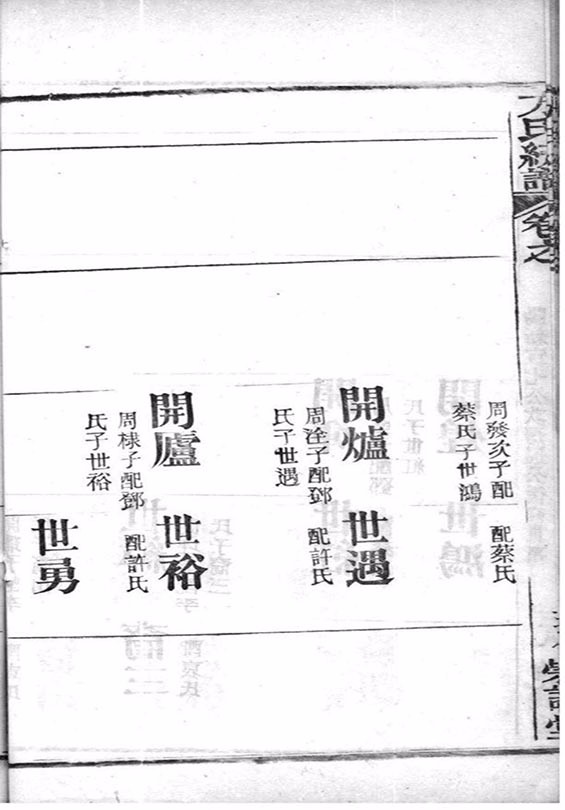 方氏統譜
卷之
周發次子配
蔡氏子世鴻
配蔡氏
開爐
周淦子配鄧
氏子世遇
世遇
配許氏
開廬
周棣子配鄧
氏子世裕
世裕
配許氏
世勇